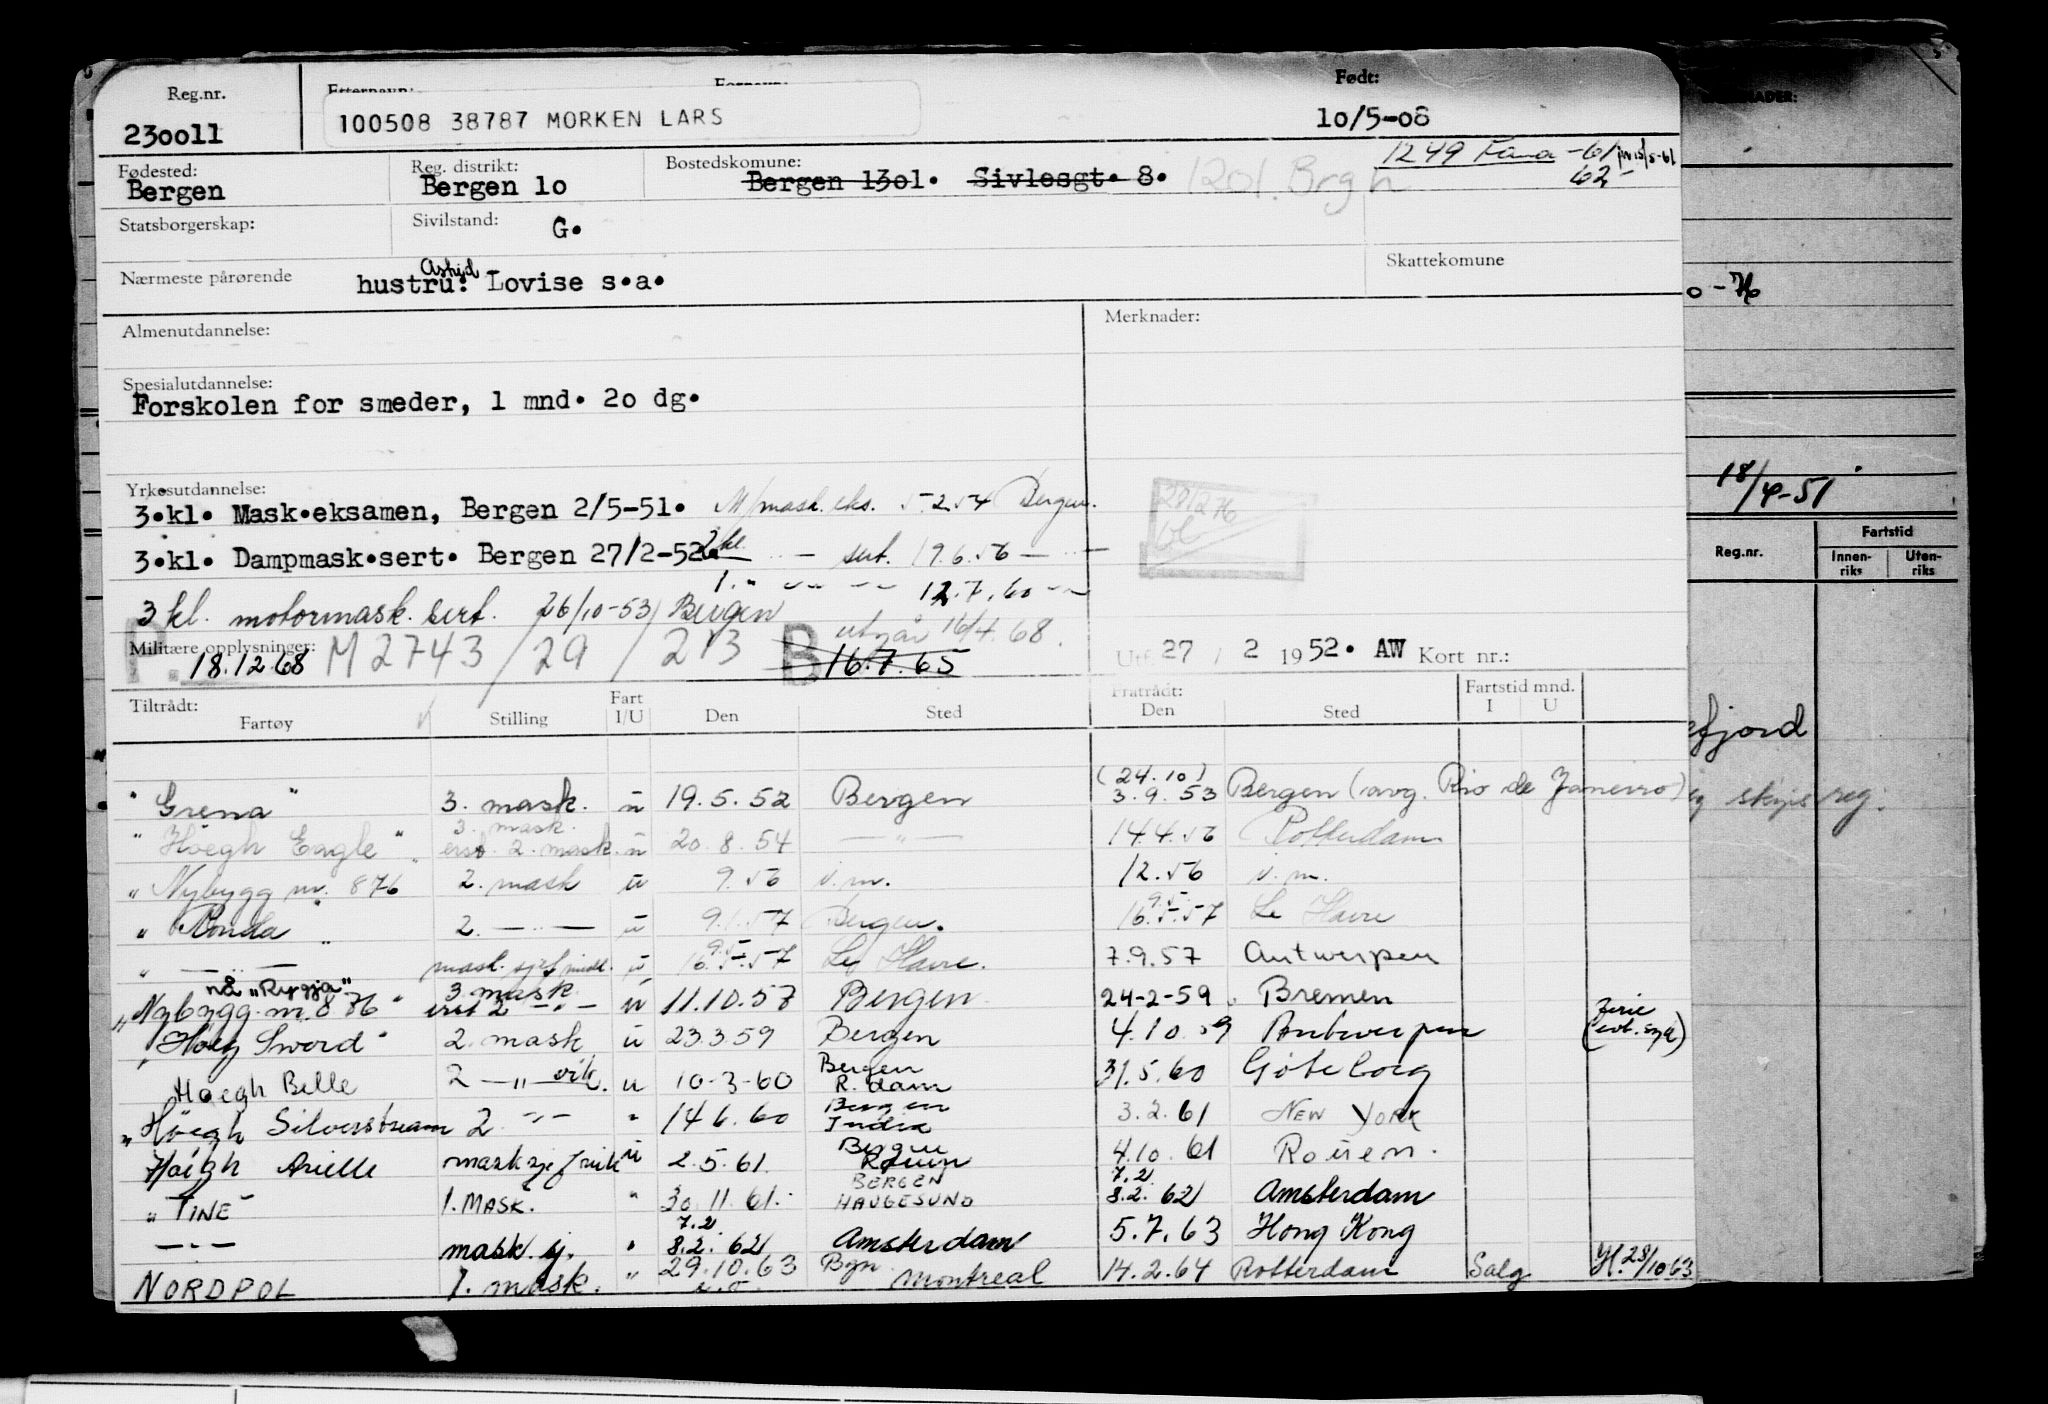 Reg.nr. Etternavn: Fornavn: Født:
23oo11 100508 38787 MORKEN LARS 1o/5-o8
Fødested: Reg. distrikt: Bostedskomune: 1249 Fana -61
Bergen Bergen 1o Bergen 13o1. Sivlosgt. 8. 1201. Brgh 62
Statsborgerskap: Sivilstand: G.
Nærmeste pårørende hustru: Lovise s.a. Skattekomune
Almenutdannelse: Merknader:
Spesialutdannelse:
Forskolen for smeder, 1 mnd. 2o dg.
Yrkesutdannelse:
3.kl. Mask.eksamen, Bergen 2/5-51. M/mask. eks. 5.2.54 Bergen.
3.kl. Dampmask.sert. Bergen 27/2-52. 2kl. — " — sert. 19.6.56 — " —
1. " — " — 12.7.60 - " -
3 kl. motormask. sert. 26/10-53/ Bergen
utgår 16/4.68.
Militære opplysninger: P. 18.12.68 M2743/29/213 B 16.7.65 Utf. 27 / 2 1952. AW Kort nr.:
Tiltrådt: Fratrådt: Fartstid mnd.
Fartøy Stilling Fart I/U Den Sted Den Sted I U
"Grena" 3. mask. u 19.5.52 Bergen (24.10) 3.9.53 Bergen (avg. Rio de Janeiro)
"Høegh Eagle" 3. mask. erst. 2. mask. u 20.8.54 — " — 14.4.56 Rotterdam
"Nybygg nr. 876" 2. mask u 9.56 i.m. 12.56 i.m.
"Ronda" 2. — " — u 9.1.57 Bergen. 9.5. 16.5.57 Le Havre
" — " — mask. sjef midl. u 9.5 16.5.57 Le Havre. 7.9.57 Antwerpen
nå "Rygja"
"Nybygg. nr. 876" 3. mask erst 2 — " — u 11.10.57 Bergen 24-2-59 Bremen
"Høeg Sword" 2. mask u 23.3.59 Bergen 4.10.59 Antwerpen
Høegh Belle 2 — " — vik. u 10-3-60 Bergen R.dam 31.5.60 Göteborg
"Høegh Silverstream 2 - " - " 14.6.60 Bergen India 3.2.61 NEW YORK
Høegh Arielle masksjef vik u 2.5.61. Bergen Rouen 4.10.61 Rouen.
"TINE" 1. MASK. " 30.11.61. BERGEN HAUGESUND 7.2 8.2.62 Amsterdam
— " — mask. sj. " 7.2 8.2.62 Amsterdam 5.7.63 Hong Kong
NORDPOL 1. mask. " 29.10.63 Bgn Montreal 14.2.64 Rotterdam Salg 28/10 63
18/4-51
Reg.nr. Fartstid
Innen-riks Uten-riks
fjord
skips reg.